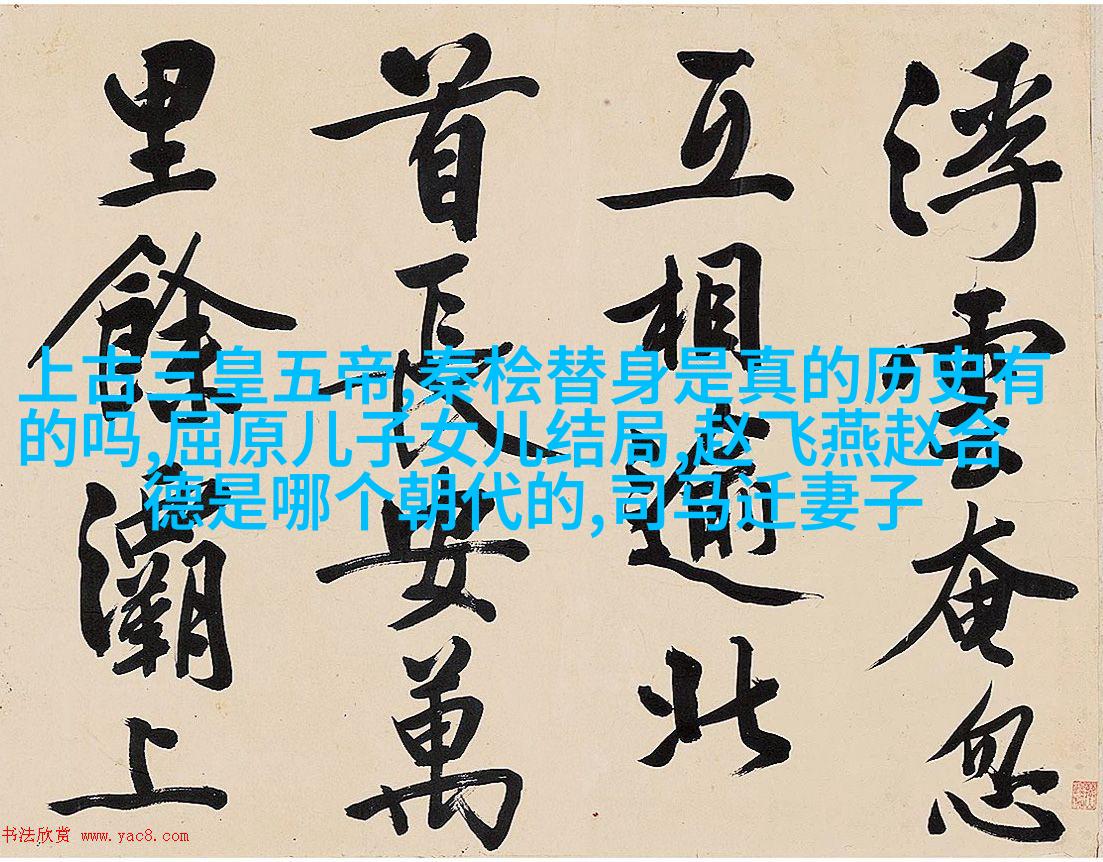 浮雲奄忽
互相逾北
首長安萬
里餘灞上
上古三皇五帝,秦桧替身是真的历史有
的吗,屈原儿子女儿结局,赵飞燕赵合
德是哪个朝代的,司马迁妻子
书法欣赏 www.yac8.com